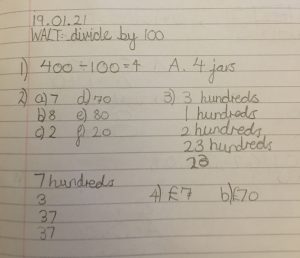 19.01.21
WALT: divide by 100
1) 400 ÷ 100 = 4   A. 4 jars
2) a) 7   d) 70   3) 3 hundreds
b) 8   e) 80   1 hundreds
c) 2   f) 20   2 hundreds
23 hundreds
23
7 hundreds
3   4) £7   b) £70
37
37